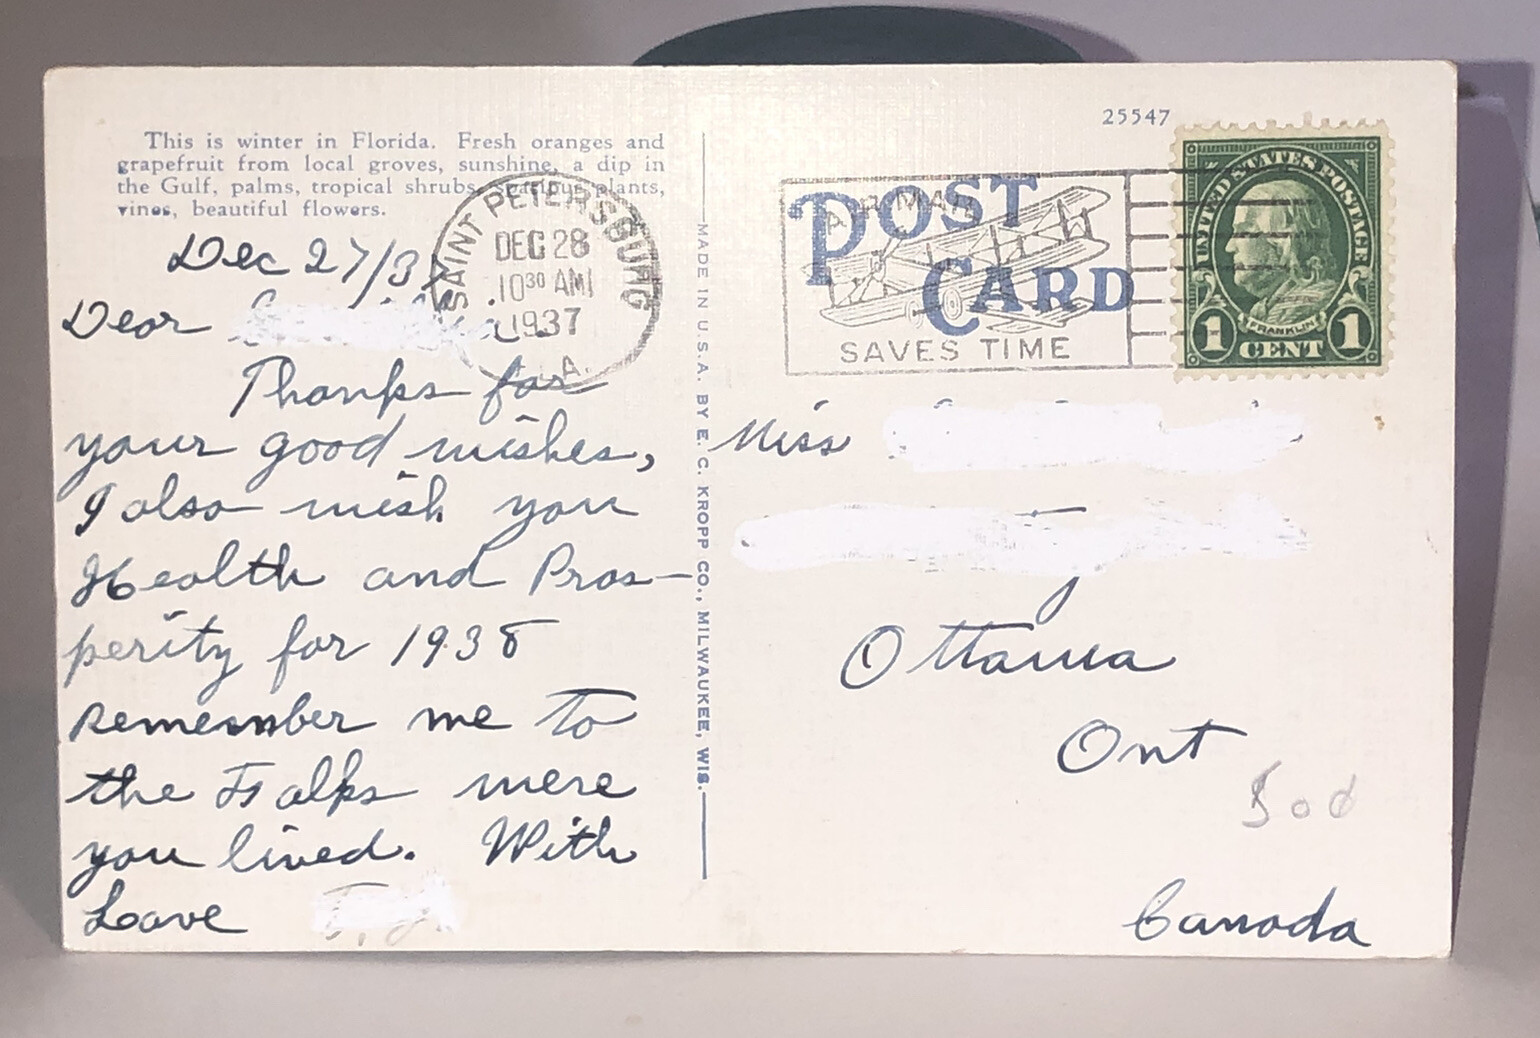 This is winter in Florida. Fresh oranges and
grapefruit from local groves, sunshine, a dip in
the Gulf, palms, tropical shrubs, plants,
vines, beautiful flowers.
Dec 27/37
Dear
Thanks for
your good wishes,
I also wish you
Health and Pros-
perity for 1938
remember me to
the Folks were
you lived. With
Love
SAINT PETERSBURG
DEC 28
10 30 AM
1937
MADE IN U.S.A. BY E. C. KROPP CO., MILWAUKEE, WIS.
25547
POST
CARD
AIR MAIL
SAVES TIME
UNITED STATES POSTAGE
FRANKLIN
1 CENT 1
Miss
Ottawa
Ont
Canada